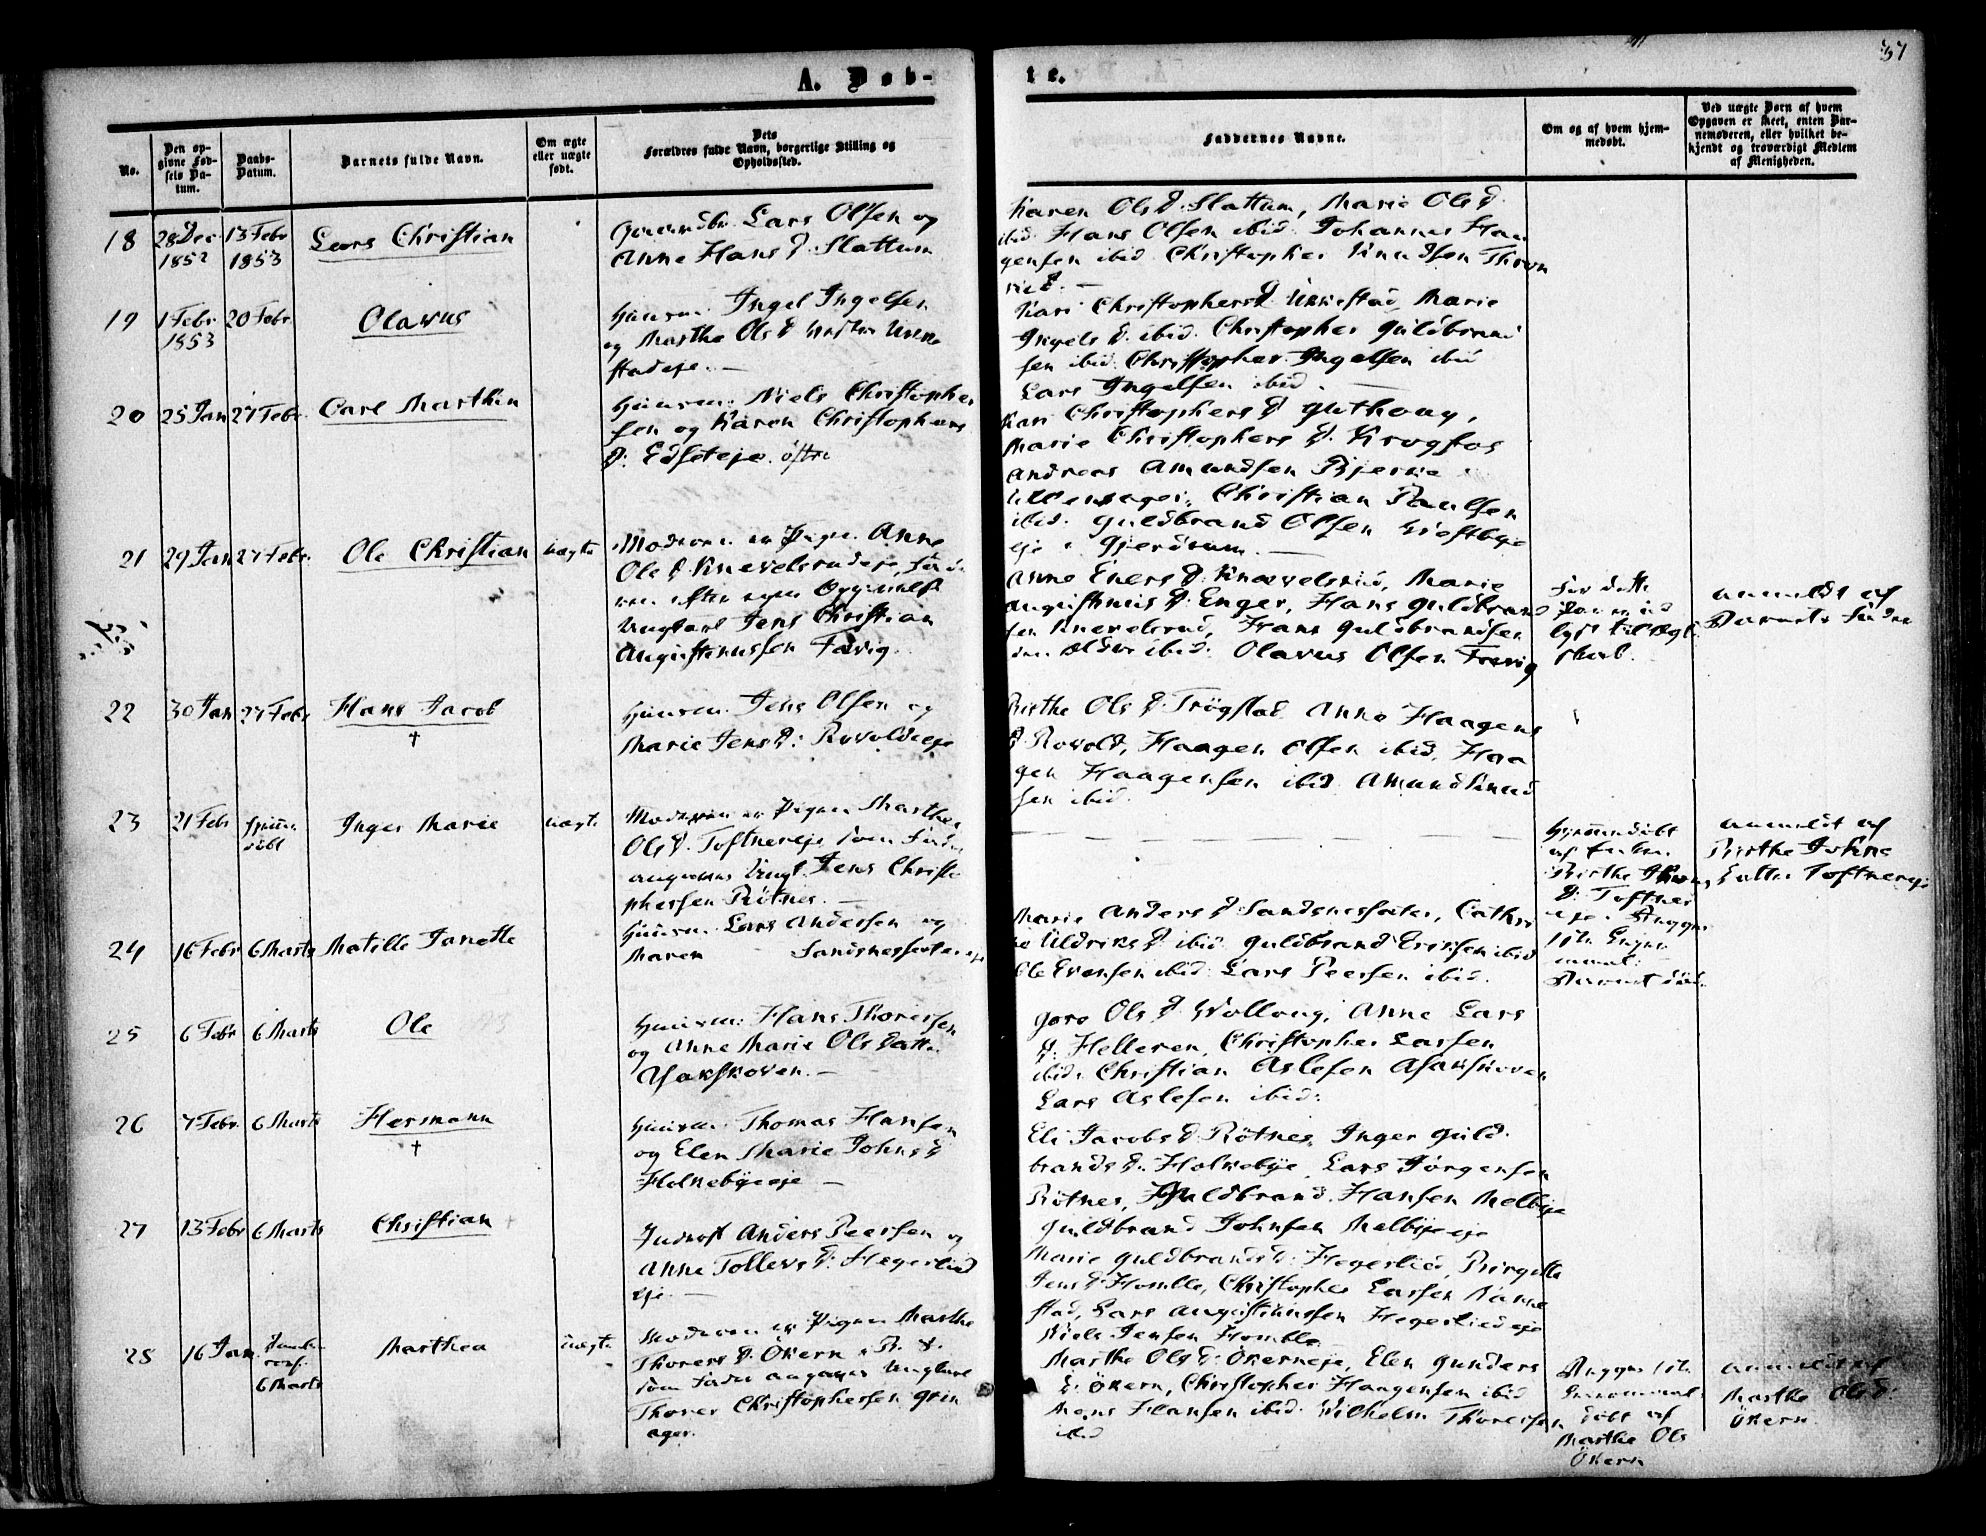 A. Døb-
te.
37
No.
Den opgivne Fødsels Datum.
Daabs-Datum.
Barnets fulde Navn.
Om ægte eller uægte født.
Dets Forældres fulde Navn, borgerlige Stilling og Opholdssted.
Faddernes Navne.
Om og af hvem hjemmedøbt.
Ved uægte Børn af hvem Opgaven er skeet, enten Barnemoderen, eller hvilket bekjendt og troværdigt Medlem af Menigheden.
18
28 Dec
1852
13 Febr
1853
Lars Christian
Gaardbr. Lars Olsen og
Anne Hans D. Slattum
Karen Ols D. Slattum, Marie Ols D.
ibid. Hans Olsen ibid. Johannes Haa
gensen ibid Christopher Knudsen Thron
rud. —
19
1 Febr
1853
20 Febr.
Olavus
Huusm. Ingel Ingelsen
og Marthe Ols D
stadeje. —
Kari Christophers D. Ukkestad, Marie
Ingels D. ibid. Christopher Guldbrand
sen ibid. Christopher Ingelsen ibid
Lars Ingelsen ibid. —
20
25 Jan
27 Febr.
Carl Marthin
Huusm. Niels Christopher
sen og Karen Christophers
D. Edsteje. østre
Kari Christophers D
Marie Christophers D. Krogfos
Andreas Amundsen Bjerke
Christian Paulsen
ibid. Guldbrand Olsen
eje i Gjerdrum. —
21
29 Jan
27 Febr.
Ole Christian
uægte
Moderen er Pigen Anne
Ols D. Knevelsrudeje, Fade
ren efter egen Opgivelse
Ungkarl Jens Christian
Augustinussen
Anne Eners D. Knevelsrud, Marie
Augustinus D. Enger, Hans Guldbrand
sen Knevelsrud, Hans Guldbrandsen
den ældre ibid. Olavus Olsen
For dette
Par er ud
lyst til Ægte
skab.
anmeldt af
Barnets Fader
22
30 Jan
27 Febr
Hans Jacob
†
Huusm. Jens Olsen og
Marie Jens D: Rovoldeje
Birthe Ols D. Trøgstad Anne Haagens
D. Rovold, Haagen Olsen ibid, Haa
gen Haagensen ibid Amund Knud
sen ibid.
23
21 Febr
Hjemme
døbt
Inger Marie
uægte
Moderen er Pigen Marthe
Ols D. Toftnereje som Fader
angives Ungk. Jens Christo
phersen Røtnes. —
Hjemmedøbt
af Enken
Birthe Johns
D. Toftner
eje.
Barnet død
anmeldt af
Birthe Johns
Datter Toftnereje
24
16 Febr
6 Marts
Matille Janette
Huusm. Lars Andersen og
Maren Sandsnesseter eje
Marie Anders D. Sandsneseter, Cathri
ne Uldriks D. ibid. Guldbrand Eriksen ibid
Ole Evensen ibid. Lars Peersen ibid.
25
6 Febr
6 Marts
Ole
Huusm: Hans Thoresen
og Anne Marie Ols Datter
Asakskoven. —
Goro Ols D. Wollaug, Anne Lars
D. Helleren, Christopher Larsen
ibid. Christian Aslesen Asakskoven
Lars Aslesen ibid.
26
7 Febr.
6 Marts
Hermann
†
Huusm. Thomas Hansen
og Elen Marie Johns D
Holkebyeeje —
Eli Jacobs D. Røtnes, Inger Guld
brands D. Holkebye, Lars Jørgensen
Røtnes, Guldbrand Hansen Melbye
Guldbrand Johnsen Melbyeeje
27
13 Febr
6 Marts
Christian
Inderst Anders Peersen og
Anne Tollevs D: Hegerlied
eje. —
Marie Guldbrands D: Hegerlied, Birgitte
Jens D. Homble, Christopher Larsen
stad, Lars Augustinussen Hegerliedeje
Niels Jensen Homble
28
16 Jan
6 Marts
Marthea
uægte
Moderen er Pigen Marthe
Thorers D. Økern,
som Fader angives Ungkarl
Thorer Christophersen Grin
ager.
Marthe Ols D. Økerneje, Elen Gunders
D. Økern, Christopher Haagensen ibid
Mons Hansen ibid. Wilhelm Thoresen
ibid
døbt af
Marthe Ols
Økern
anmeldt af
Marthe Ols D.
Økern.